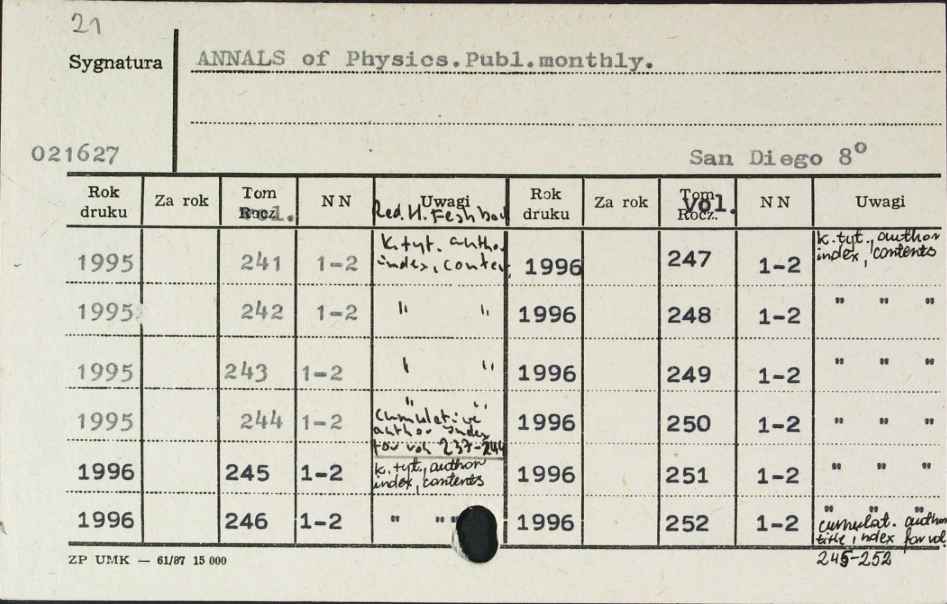 21
Sygnatura ANNALS of Physics.Publ.monthly.
021627 San Diego 8°
Rok druku Za rok Tom Rocz. Vol. NN Uwagi Rok druku Za rok Tom Rocz. Vol. NN Uwagi
Red. H. Feshbach
1995 241 1-2 k.tyt. author index, conten 1996 247 1-2 k.tyt., author index, contents
1995 242 1-2 " " 1996 248 1-2 " " "
1995 243 1-2 " " 1996 249 1-2 " " "
1995 244 1-2 " " cumulative author index for vol. 237-244 1996 250 1-2 " " "
1996 245 1-2 k.tyt., author index, contents 1996 251 1-2 " " "
1996 246 1-2 " " " 1996 252 1-2 " " " cumulat. author title, index for vol. 245-252
ZP UMK — 61/87 15 000